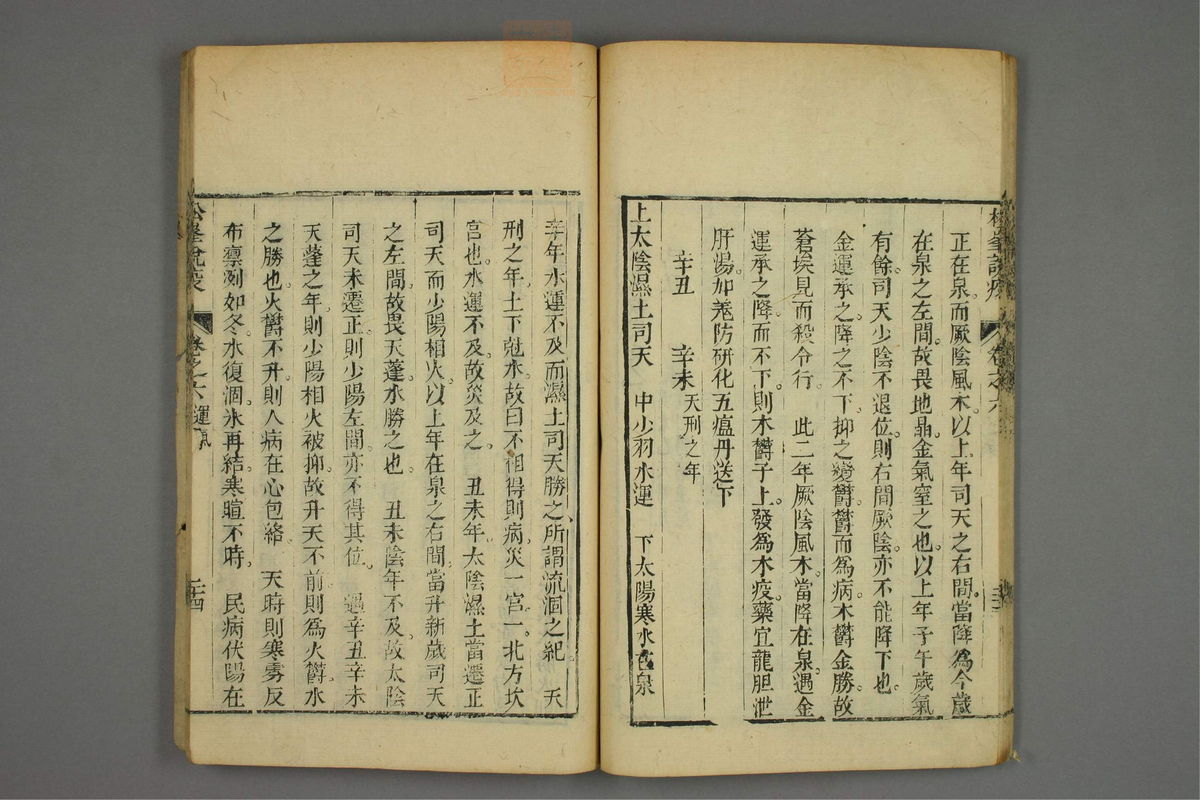 松峯說疫 卷之六
正在泉而厥陰風木以上年司天之右間當降為今歲
在泉之左間故畏地晶金氣窒之也以上年子午歲氣
有餘司天少陰不退位則右間厥陰亦不能降下也
金運承之降之不下抑之變鬱鬱而為病木鬱金勝故
蒼埃見而殺令行　此二年厥陰風木當降在泉遇金
運承之降而不下則木鬱子上發為木疫藥宜龍胆泄
肝湯如羗防研化五瘟丹送下
辛丑　辛未天刑之年
上太陰濕土司天　中少羽水運　下太陽寒水在泉
辛年水運不及而濕土司天勝之所謂流涸之紀　天
刑之年土下尅水故曰不相得則病災一宮一北方坎
宮也水運不及故災及之　丑未年太陰濕土當遷正
司天而少陽相火以上年在泉之右間當升新歲司天
之左間故畏天蓬水勝之也　丑未陰年不及故太陰
司天未遷正則少陽左間亦不得其位　遇辛丑辛未
天蓬之年則少陽相火被抑故升天不前則為火鬱水
之勝也火鬱不升則人病在心包絡　天時則寒雰反
布凛冽如冬水復涸氷再結寒暄不時　民病伏陽在
松峯說疫 卷之六 運氣 二十四